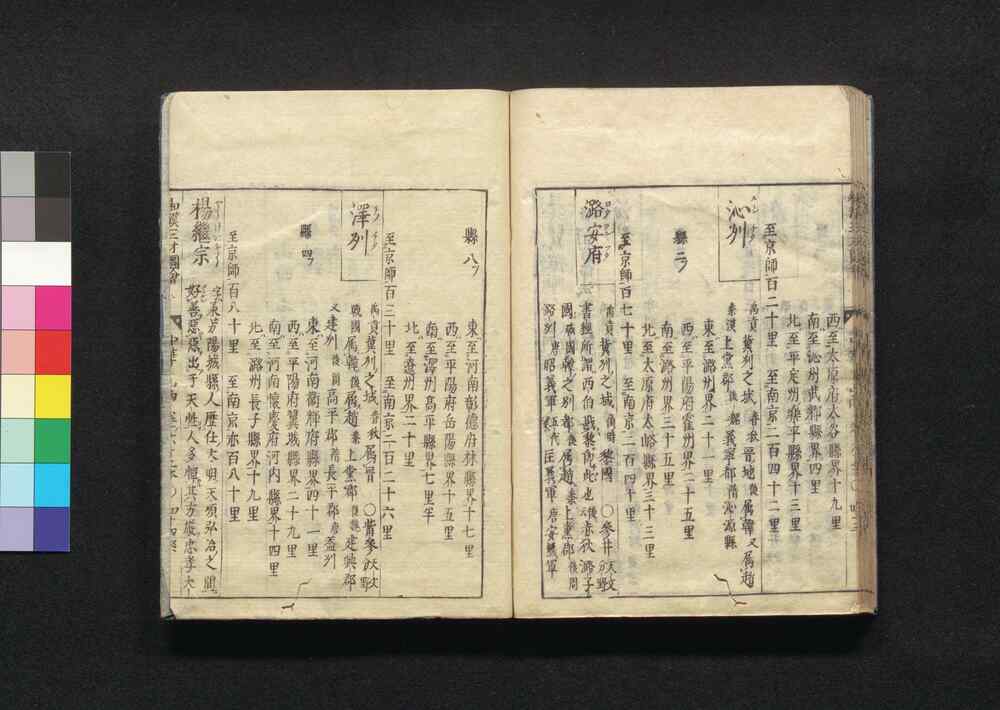 西至太原府太谷縣界十九里
南至沁州武鄉縣界四里
北至平定州樂平縣界十三里
至京師百二十里 至南京二百四十二里
沁州
禹貢冀州之域 春秋晉地後屬韓又屬趙
秦漢上黨郡後魏義寧郡隋沁源縣
縣二
東至潞州界二十一里
西至平陽府霍州界二十五里
南至潞州界三十五里
北至太原府太峪縣界三十三里
至京師百七十里 至南京二百四十里
潞安府
禹貢冀州之域 黎國 〇參井分野
書 西伯戡黎即此也 赤狄潞子
國戰國韓之別都後屬趙秦上黨郡後周
潞州唐昭義軍五代匡義軍 唐安義軍
縣八
東至河南彰德府林縣界十七里
西至平陽府岳陽縣界十五里
南至澤州高平縣界七里半
北至遼州界二十里
至京師百三十里 至南京二百二十六里
澤州
禹貢冀州之域春秋屬晉 〇觜參分野
戰國屬韓後屬趙秦上黨郡後魏建興郡
又建州後周高平郡隋長平郡唐蓋州
縣四
東至河南衞輝府縣界四十一里
西至平陽府翼城縣界二十九里
南至河南懷慶府河内縣界十四里
北至潞州長子縣界十九里
至京師百八十里 至南京亦百八十里
楊繼宗
字承芳陽城縣人歷仕大明天順弘治之間
好善惡惡出于天性人多憚其方嚴忠孝大
和漢三才圖會